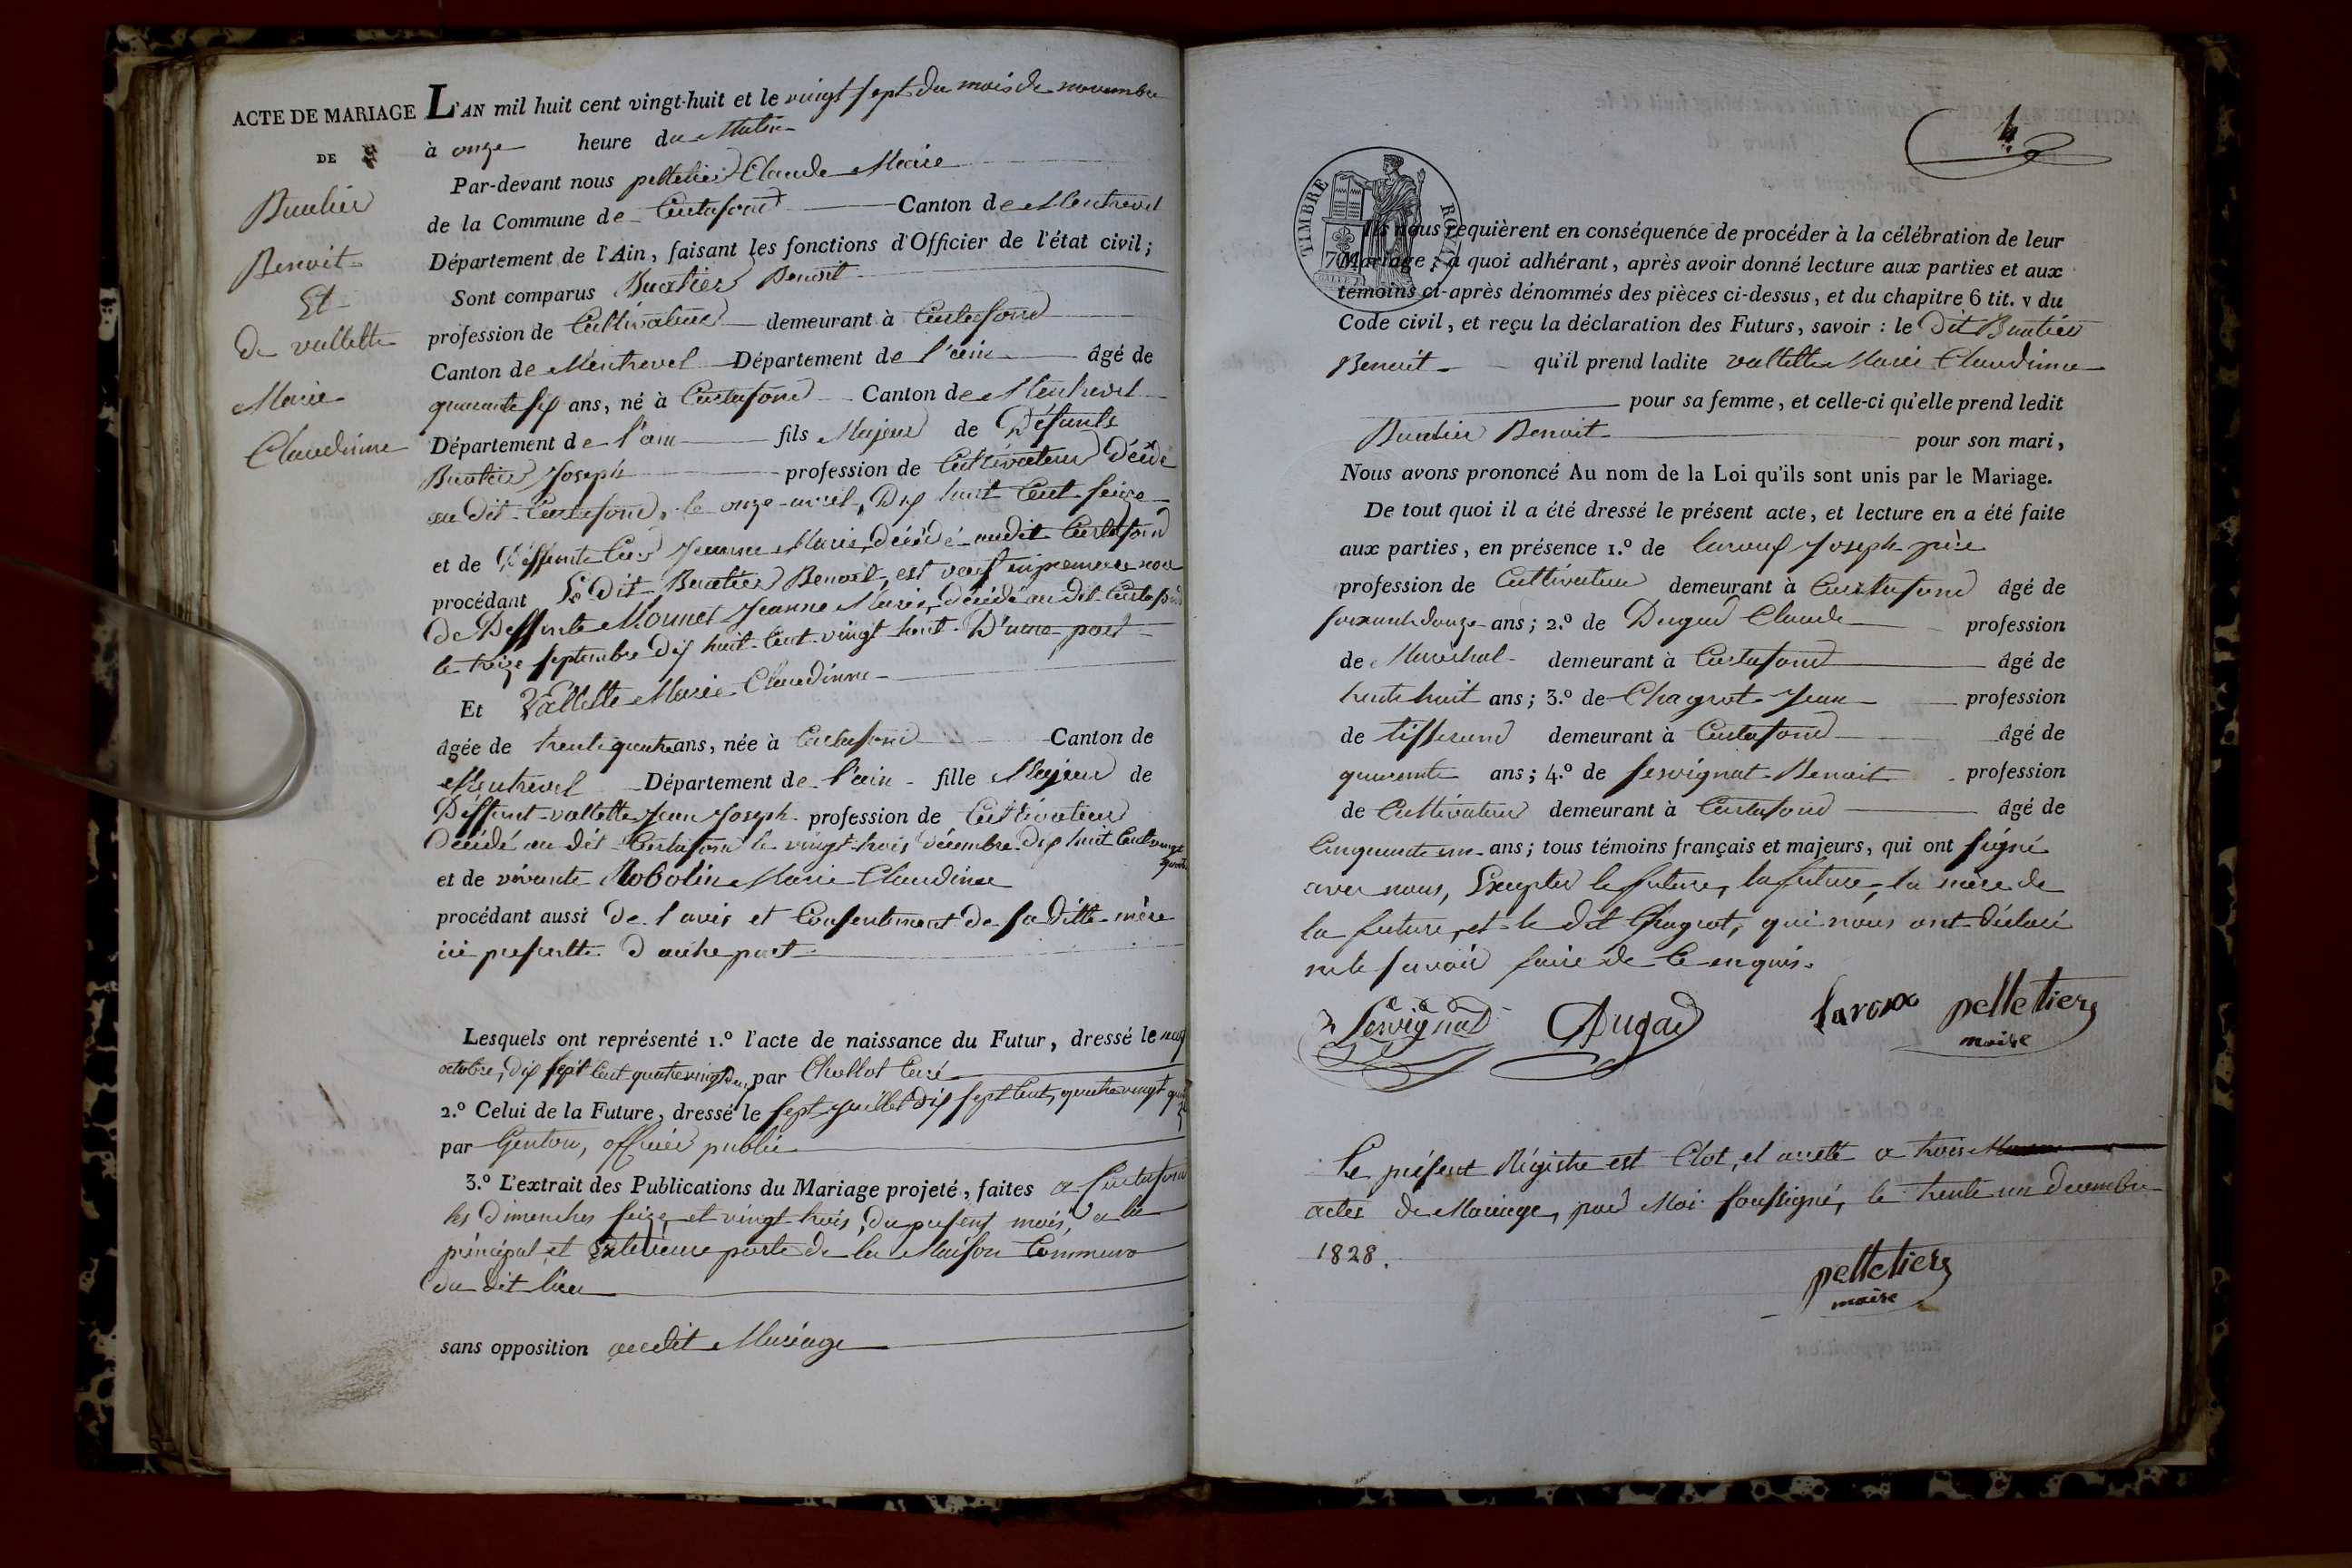 ACTE DE MARIAGE
DE
Buatier
Benoit
Et
de vallette
Marie
Claudinne
L'AN mil huit cent vingt-huit et le vingt sept du mois de novembre
à onze heure du Matin
Par-devant nous pelletier Claude Maire
de la Commune de Curtafond Canton de Montrevel
Département de l'Ain, faisant les fonctions d'Officier de l'état civil;
Sont comparus Buatier Benoit
profession de Cultivateur demeurant à Curtafond
Canton de Montrevel Département de l'ain âgé de
quarante six ans, né à Curtafond Canton de Montrevel
Département de l'ain fils Majeur de Défunts
Buatier Joseph profession de Cultivateur Décédé
au dit Curtafond, le onze avril, Dix huit Cent seize
et de Deffunte Jeanne Marie, décédé audit Curtafond
procédant Le Dit Buatier Benoit, est veuf en premiere noce
De Deffunte Monnet Jeanne Marie, décédé au dit Curtafond
le treize septembre dix huit Cent vingt huit. D'une part
Et Vallette Marie Claudinne
âgée de trente quatre ans, née à Curtafond Canton de
Montrevel Département de l'ain fille Majeur de
Deffunt vallette Jean Joseph profession de Cultivateur
Décédé au dit Curtafond le vingt trois décembre dix huit Cent vingt
et de vivante Robolin Marie Claudinne
procédant aussi de l'avis et Consentement de sa ditte mère
ici presente d'autre part
Lesquels ont représenté 1.º l'acte de naissance du Futur, dressé le neuf
octobre, dix sept Cent quatrevingt deux, par Chollot Curé
2.º Celui de la Future, dressé le sept juillet dix sept Cent, quatrevingt quatorze
par Genton, officier public
3.º L'extrait des Publications du Mariage projeté, faites a Curtafond
les dimenches seize et vingt trois, du present mois, a la
principal et Exterieure porte de la Maison Commune
du dit lieu
sans opposition audit Mariage
4
TIMBRE ROYAL
70
Ils nous requièrent en conséquence de procéder à la célébration de leur
Mariage; à quoi adhérant, après avoir donné lecture aux parties et aux
témoins ci-après dénommés des pièces ci-dessus, et du chapitre 6 tit. v du
Code civil, et reçu la déclaration des Futurs, savoir : le Dit Buatier
Benoit qu'il prend ladite vallette Marie Claudinne
pour sa femme, et celle-ci qu'elle prend ledit
Buatier Benoit pour son mari,
Nous avons prononcé Au nom de la Loi qu'ils sont unis par le Mariage.
De tout quoi il a été dressé le présent acte, et lecture en a été faite
aux parties, en présence 1.º de Joseph père
profession de Cultivateur demeurant à Curtafond âgé de
soixante douze ans; 2.º de Dugad Claude profession
de Maréchal demeurant à Curtafond âgé de
trente huit ans; 3.º de Chagrot Jean profession
de tisserand demeurant à Curtafond âgé de
quarante ans; 4.º de servignat Benoit profession
de Cultivateur demeurant à Curtafond âgé de
Cinquante un ans; tous témoins français et majeurs, qui ont signé
avec nous, Excepter le future, la future, la mère de
la future, et le dit Chagrot, qui nous ont déclaré
ne le savoir faire de Ce enquis.
Servignat Dugad laroux pelletier
maire
Le présent Régistre est Clot, et arreté a trois
actes de Mariage, par Moi soussigné, le trente un decembre
1828.
pelletier
maire